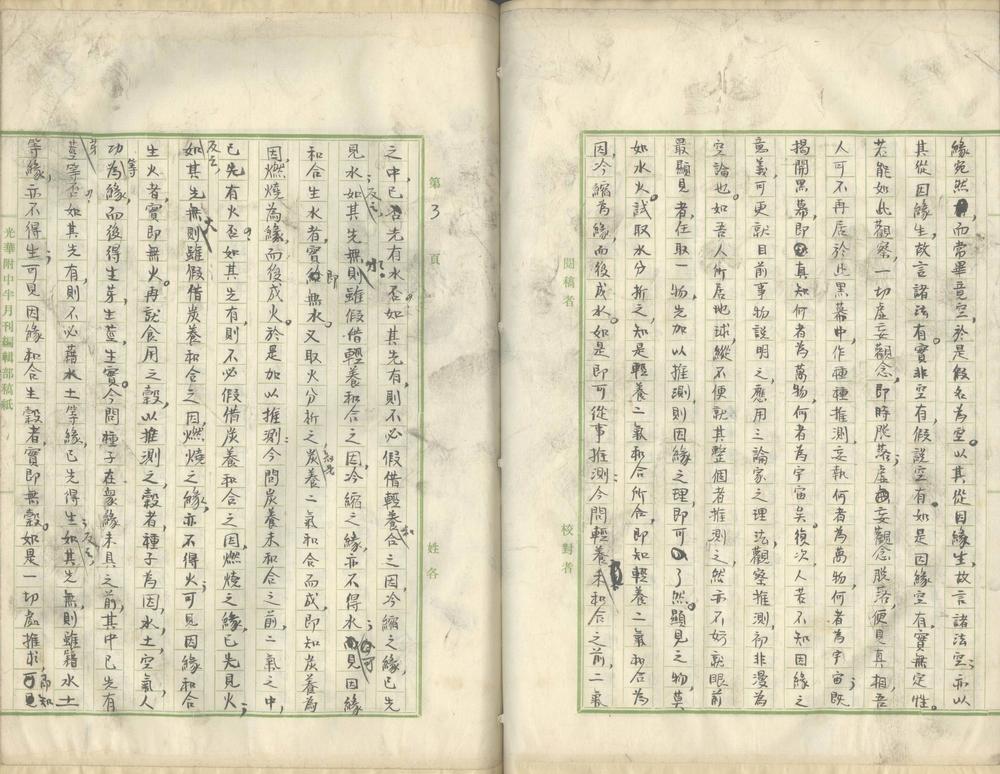 緣宛然，而常畢竟空，於是假名為空。以其從因緣生，故言諸法空；亦以
其從因緣生，故言諸法有。實非空有，假說空有。如是因緣空有，實無定性。
若能如此觀察，一切虛妄觀念，即時脫落；虛妄觀念脫落，便見真相。吾
人可不再居於此黑幕中，作種種推測，妄執何者為萬物，何者為宇宙；既
揭開黑幕，即真知何者為萬物，何者為宇宙矣。復次，人若不知因緣之
意義，可更就目前事物說明之。應用三論家之理法，觀察推測，初非漫為
空論也。如吾人所居地球，縱不便就其整個者推測之，然亦不妨就眼前
最顯見者，任取一物，先加以推測，則因緣之理，即可了然。顯見之物，莫
如水火。試取水分析之，知是輕養二氣和合所成，即知輕養二氣和合為
因，冷縮為緣，而後成水。如是即可從事推測：今問輕養未和合之前，二氣
閱稿者
校對者
第3頁
姓名
之中，已否先有水？如其先有，則不必假借輕養和合之因，冷縮之緣，已先
見水；反之，如其先無水，則雖假借輕養和合之因，冷縮之緣，亦不得水；可見因緣
和合生水者，實即無水。又取火分析之，知是炭養二氣和合而成，即知炭養為
因，燃燒為緣，而後成火。於是加以推測：今問炭養未和合之前，二氣之中，
已先有火否？如其先有，則不必假借炭養和合之因，燃燒之緣，已先見火；
反之，如其先無火，則雖假借炭養和合之因，燃燒之緣，亦不得火；可見因緣和合
生火者，實即無火。再就食用之穀，以推測之，穀者，種子為因，水土，空氣，人
功等為緣，而後得生芽，生莖，生實。今問種子在眾緣未具之前，其中已先有
芽莖等否？如其先有，則不必藉水土等緣，已先得生；反之，如其先無，則雖藉水土
等緣，亦不得生；可見因緣和合生穀者，實即無穀。如是一切處推求，即知
光華附中半月刊編輯部稿紙